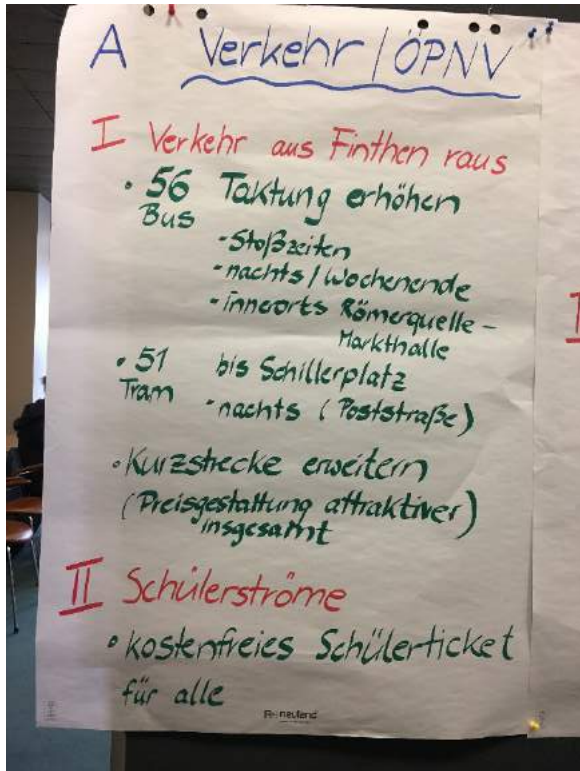 A Verkehr / ÖPNV
I Verkehr aus Finthen raus
• 56 Taktung erhöhen
Bus
- Stoßzeiten
- nachts / Wochenende
- innerorts Römerquelle –
Markthalle
• 51 bis Schillerplatz
Tram - nachts (Poststraße)
• Kurzstrecke erweitern
(Preisgestaltung attraktiver)
insgesamt
II Schülerströme
• kostenfreies Schülerticket
für alle
neuland
I